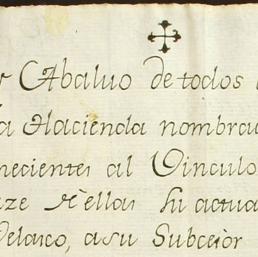 Abaluo de todos
a Hacienda nombra
necientes al Vinculo
aze d'ellas hi actua
Velasco, a su Subcesor